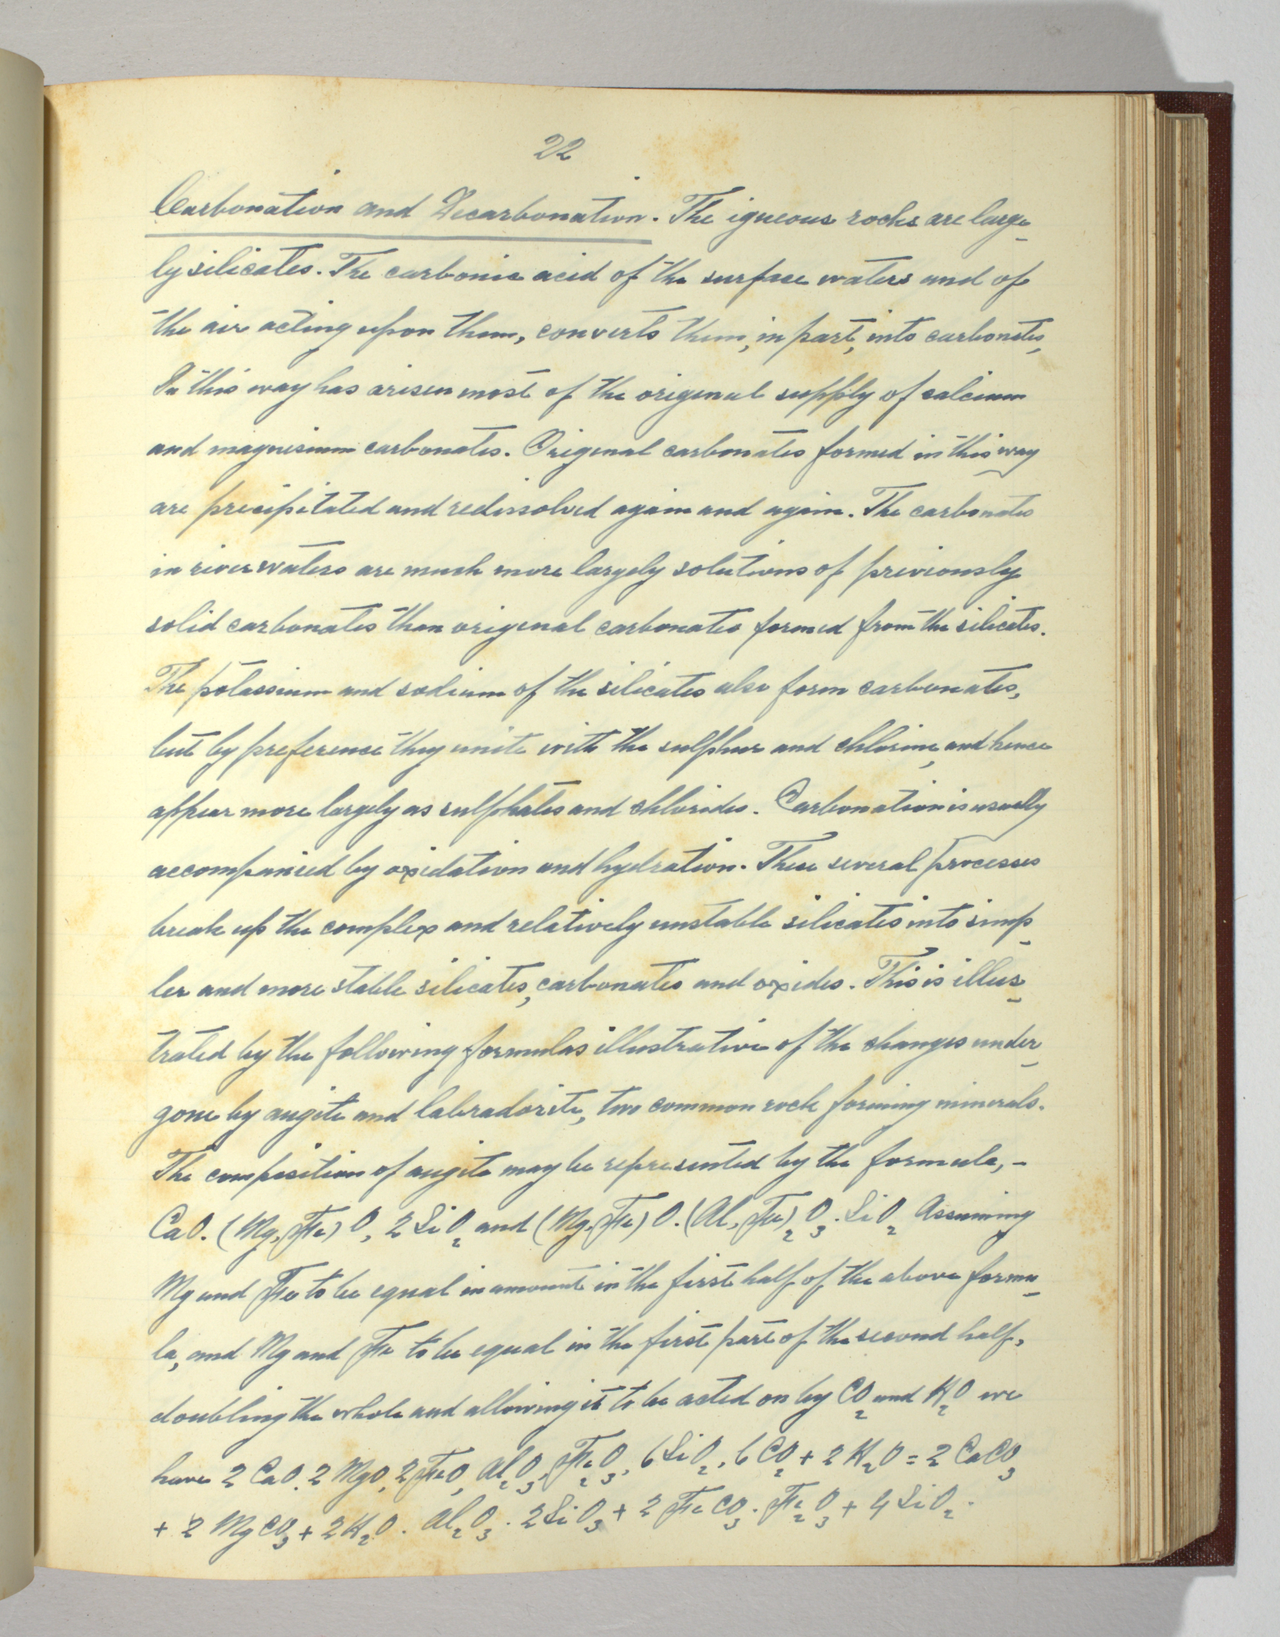 22
Carbonation and Decarbonation. The igneous rocks are large-
ly silicates. The carbonic acid of the surface waters and of
the air acting upon them, converts them, in part, into carbonates,
In this way has arisen most of the original supply of calcium
and magnesium carbonates. Original carbonates formed in this way
are precipitated and redissolved again and again. The carbonates
in river waters are much more largely solutions of previously
solid carbonates than original carbonates formed from the silicates.
The potassium and sodium of the silicates also form carbonates,
but by preference they unite with the sulphur and chlorine, and hence
appear more largely as sulphates and chlorides. Carbonation is usually
accompanied by oxidation and hydration. These several processes
break up the complex and relatively unstable silicates into simp-
ler and more stable silicates, carbonates and oxides. This is illus-
trated by the following formulas illustrative of the changes under-
gone by augite and labradorite, two common rock forming minerals.
The composition of augite may be represented by the formula, -
CaO. (Mg, Fe) O, 2 SiO₂ and (Mg, Fe) O. (Al, Fe)₂ O₃. SiO₂ Assuming
Mg and Fe to be equal in amount in the first half of the above formu-
la, and Mg and Fe to be equal in the first part of the second half,
doubling the whole and allowing it to be acted on by CO₂ and H₂O we
have 2 CaO. 2 MgO, 2 FeO, Al₂O₃, Fe₂O₃, 6 SiO₂, 6 CO₂ + 2 H₂O = 2 CaCO₃
+ 2 MgCO₃ + 2H₂O. Al₂O₃. 2SiO₃ + 2 FeCO₃. Fe₂O₃ + 4 SiO₂.